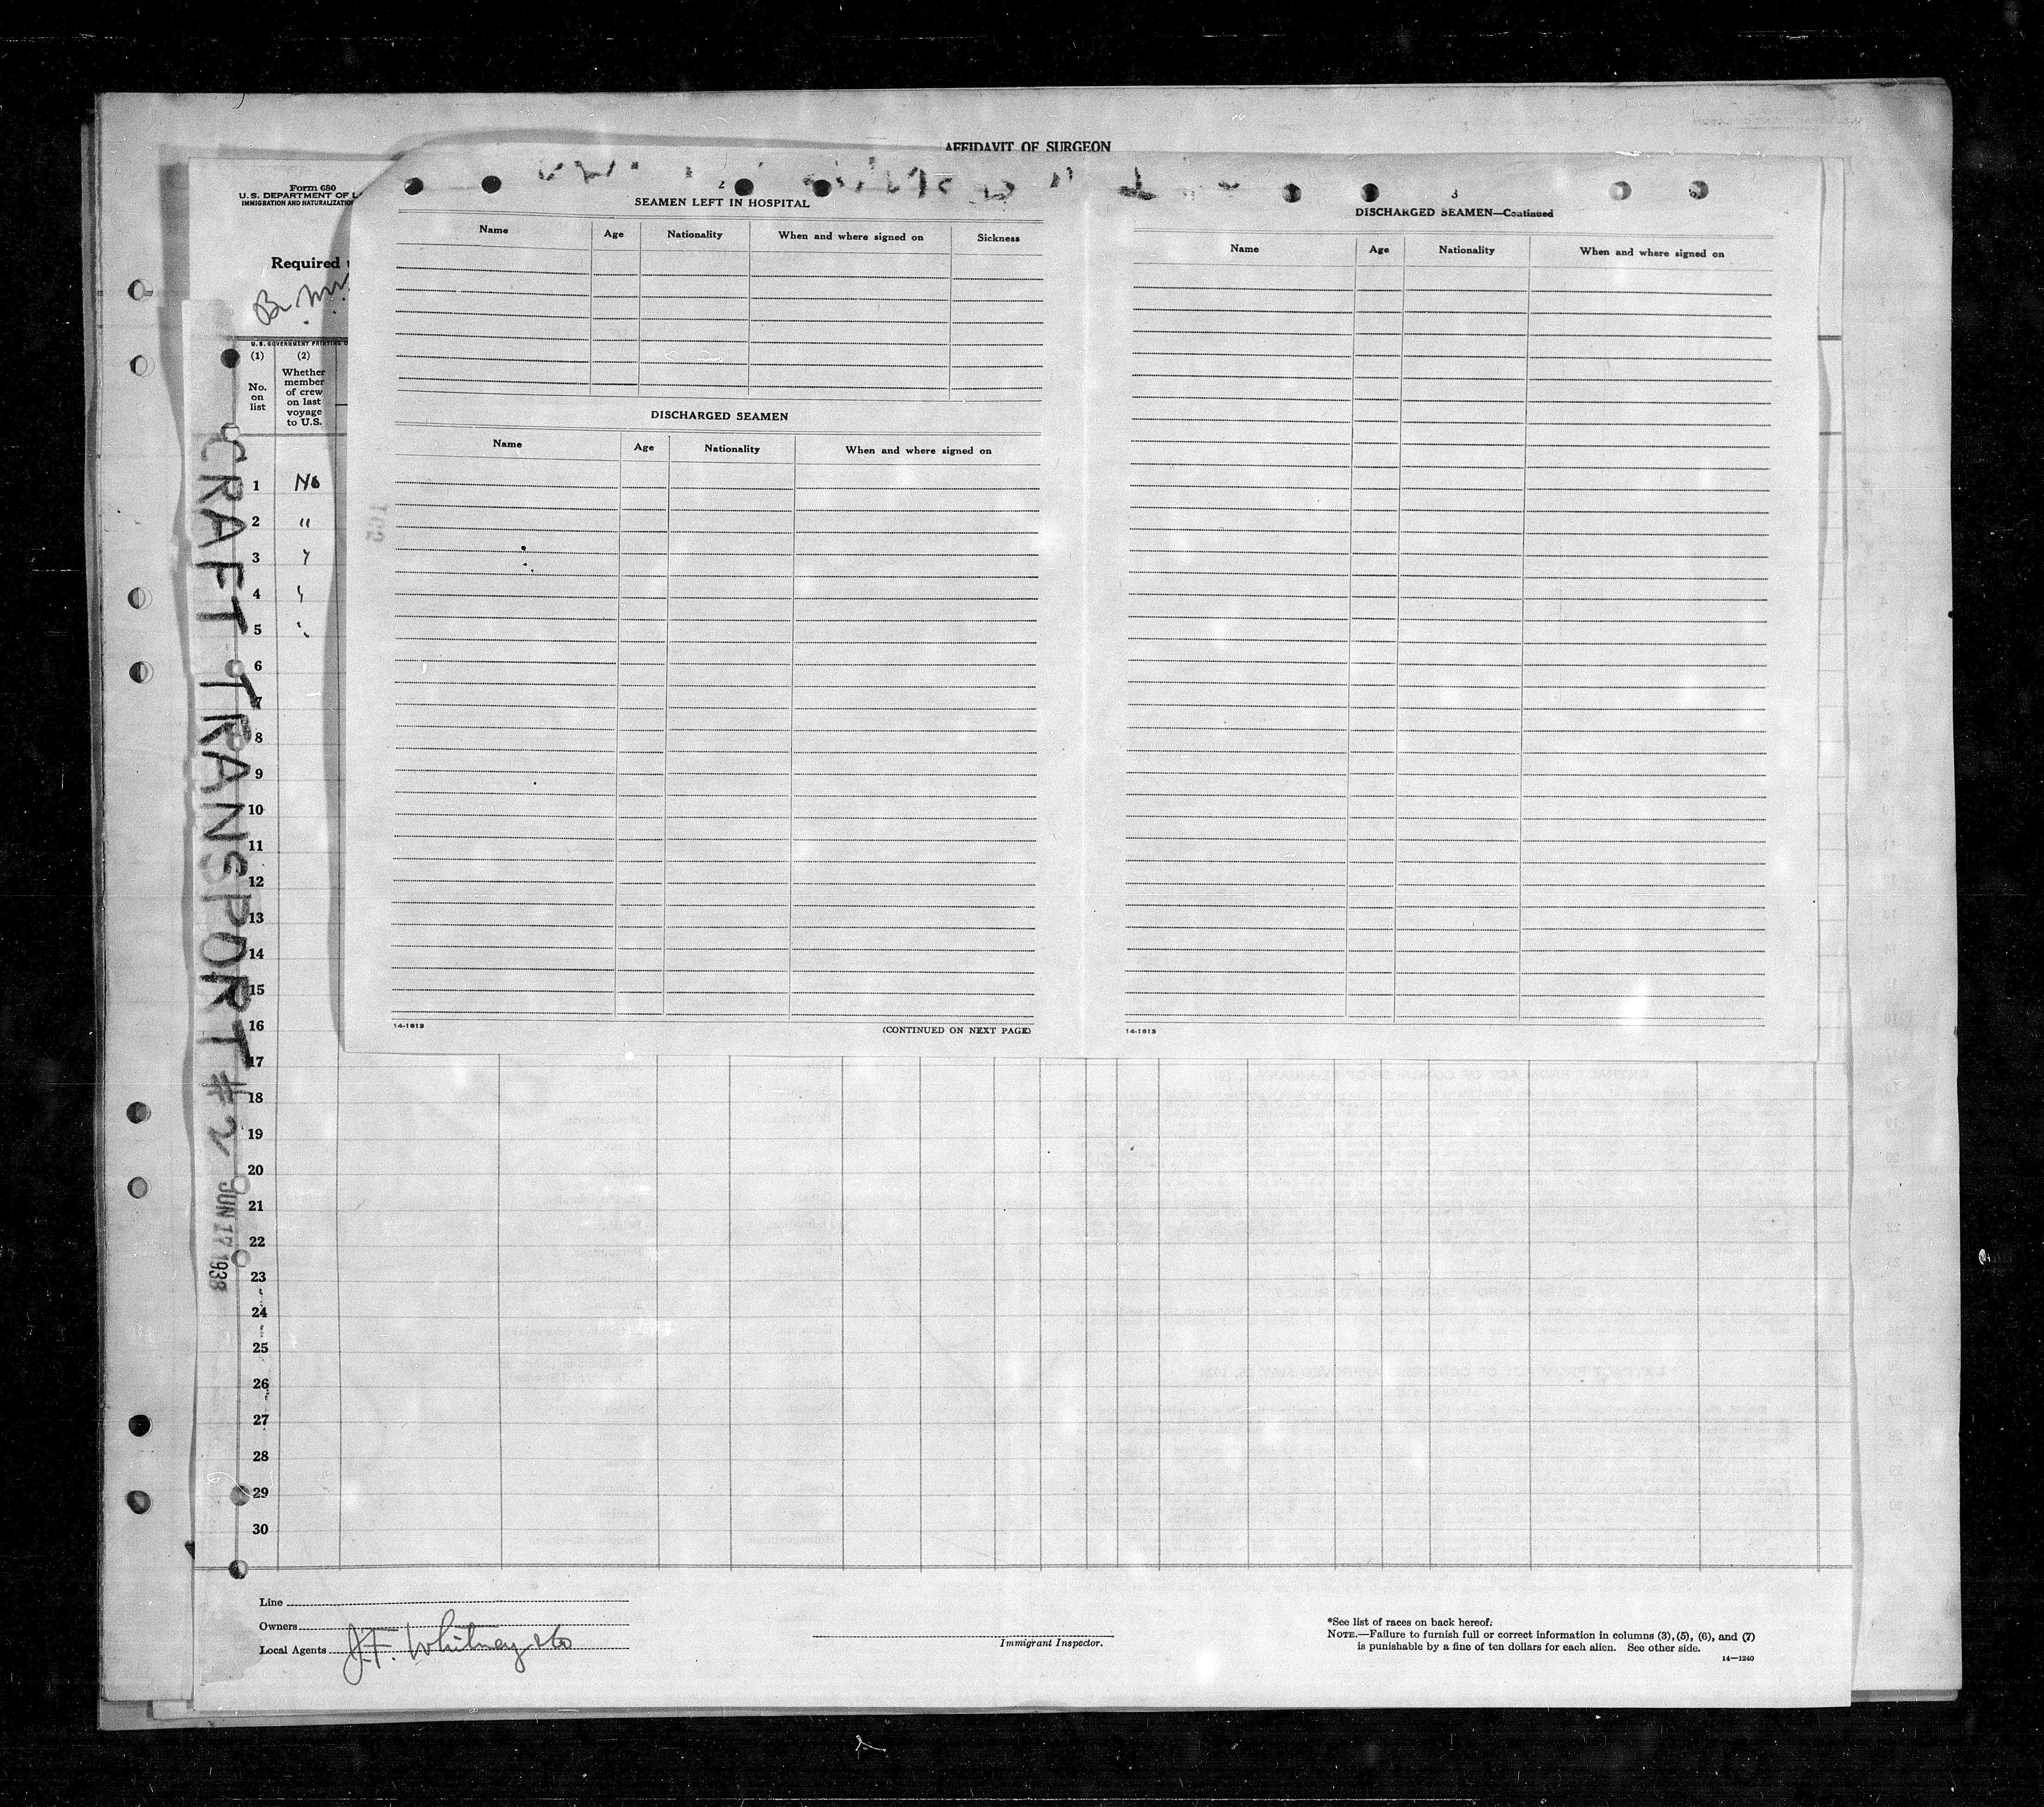 AFFIDAVIT OF SURGEON
Form 680
U. S. DEPARTMENT OF
IMMIGRATION AND NATURALIZATION
Required
Br.
U. S. GOVERNMENT PRINTING
(1) (2)
No. on list
Whether member of crew on last voyage to U.S.
1 No
2 "
3
4
5
6
7
8
9
10
11
12
13
14
15
16
17
18
19
20
21
22
23
24
25
26
27
28
29
30
CRAFT TRANSPORT #2 JUN 17 1938
2
SEAMEN LEFT IN HOSPITAL
Name Age Nationality When and where signed on Sickness
DISCHARGED SEAMEN
Name Age Nationality When and where signed on
14-1613 (CONTINUED ON NEXT PAGE)
3
DISCHARGED SEAMEN—Continued
Name Age Nationality When and where signed on
14-1613
Line
Owners
Local Agents J.F. Whitney & Co
Immigrant Inspector.
*See list of races on back hereof.
NOTE.—Failure to furnish full or correct information in columns (3), (5), (6), and (7)
is punishable by a fine of ten dollars for each alien. See other side.
14—1240